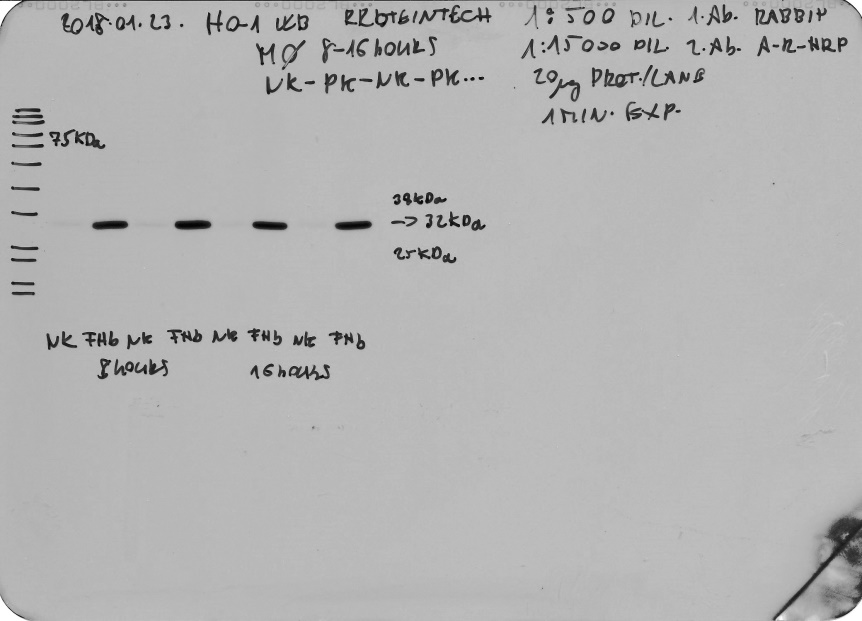 2018.01.23. HO-1 WB PROTEINTECH
MØ 8-16 hours
NK-PK-NK-PK...
1:500 DIL. 1.Ab. RABBIT
1:15000 DIL. 2.Ab. A-R-HRP
20 µg PROT./LANE
1 MIN. EXP.
75 kDa
38 kDa
-> 32 kDa
25 kDa
NK FHb NK FHb NK FHb NK FHb
8 hours 16 hours